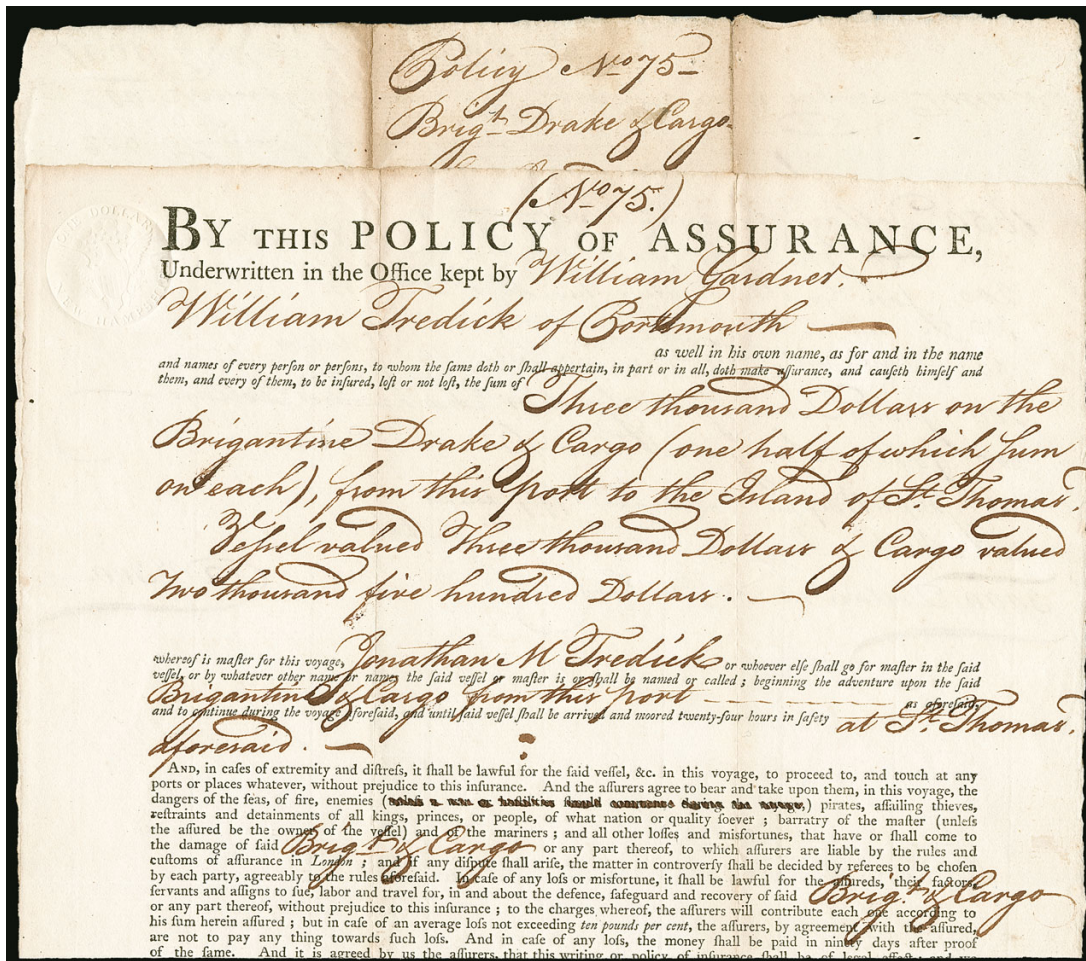 Policy No 75
Brigt Drake & Cargo
(No 75.)
BY THIS POLICY OF ASSURANCE,
Underwritten in the Office kept by William Gardner.
William Tredick of Portsmouth
as well in his own name, as for and in the name
and names of every person or persons, to whom the ſame doth or ſhall appertain, in part or in all, doth make aſſurance, and cauſeth himſelf and
them, and every of them, to be inſured, loſt or not loſt, the sum of Three thousand Dollars on the
Brigantine Drake & Cargo (one half of which sum
on each), from this port to the Island of St. Thomas.
Veſsel valued Three thousand Dollars & Cargo valued
Two thousand five hundred Dollars.
whereof is maſter for this voyage, Jonathan M Tredick or whoever elſe ſhall go for maſter in the ſaid
veſſel, or by whatever other name or names the ſaid veſſel or maſter is or ſhall be named or called; beginning the adventure upon the ſaid
Brigantine & Cargo from this port as aforeſaid,
and to continue during the voyage aforeſaid, and until ſaid veſſel ſhall be arrived and moored twenty-four hours in ſafety at St. Thomas.
aforesaid.
AND, in caſes of extremity and diſtreſs, it ſhall be lawful for the ſaid veſſel, &c. in this voyage, to proceed to, and touch at any
ports or places whatever, without prejudice to this inſurance. And the aſſurers agree to bear and take upon them, in this voyage, the
dangers of the ſeas, of fire, enemies ( ) pirates, aſſailing thieves,
reſtraints and detainments of all kings, princes, or people, of what nation or quality ſoever; barratry of the maſter (unleſs
the aſſured be the owner of the veſſel) and of the mariners; and all other loſſes and misfortunes, that have or ſhall come to
the damage of ſaid Brigt & Cargo or any part thereof, to which aſſurers are liable by the rules and
cuſtoms of aſſurance in London; and if any diſpute ſhall ariſe, the matter in controverſy ſhall be decided by referees to be choſen
by each party, agreeably to the rules aforeſaid. In caſe of any loſs or misfortune, it ſhall be lawful for the aſſureds, their factors,
ſervants and aſſigns to ſue, labor and travel for, in and about the defence, ſafeguard and recovery of ſaid Brigt & Cargo
or any part thereof, without prejudice to this inſurance; to the charges whereof, the aſſurers will contribute each one according to
his ſum herein aſſured; but in caſe of an average loſs not exceeding ten pounds per cent, the aſſurers, by agreement with the aſſured,
are not to pay any thing towards ſuch loſs. And in caſe of any loſs, the money ſhall be paid in ninety days after proof
of the ſame. And it is agreed by us the aſſurers, that this writing or policy of inſurance ſhall be of legal effect; and we